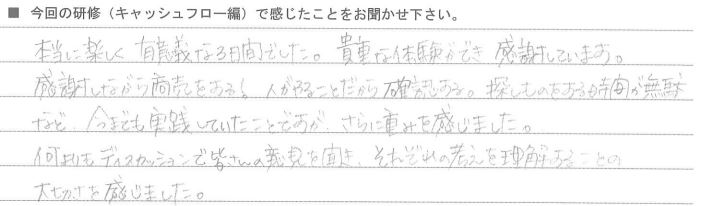 ■ 今回の研修（キャッシュフロー編）で感じたことをお聞かせ下さい。
本当に楽しく 有意義な3日間でした。貴重な体験ができ 感謝しています。
感謝しながら商売をする！ 人がやることだから確認する。探しものをする時間が無駄
など、今までも実践していたことですが、さらに重みを感じました。
何よりもディスカッションで皆さんの意見を聞き、それぞれの考えを理解することの
大切さを感じました。